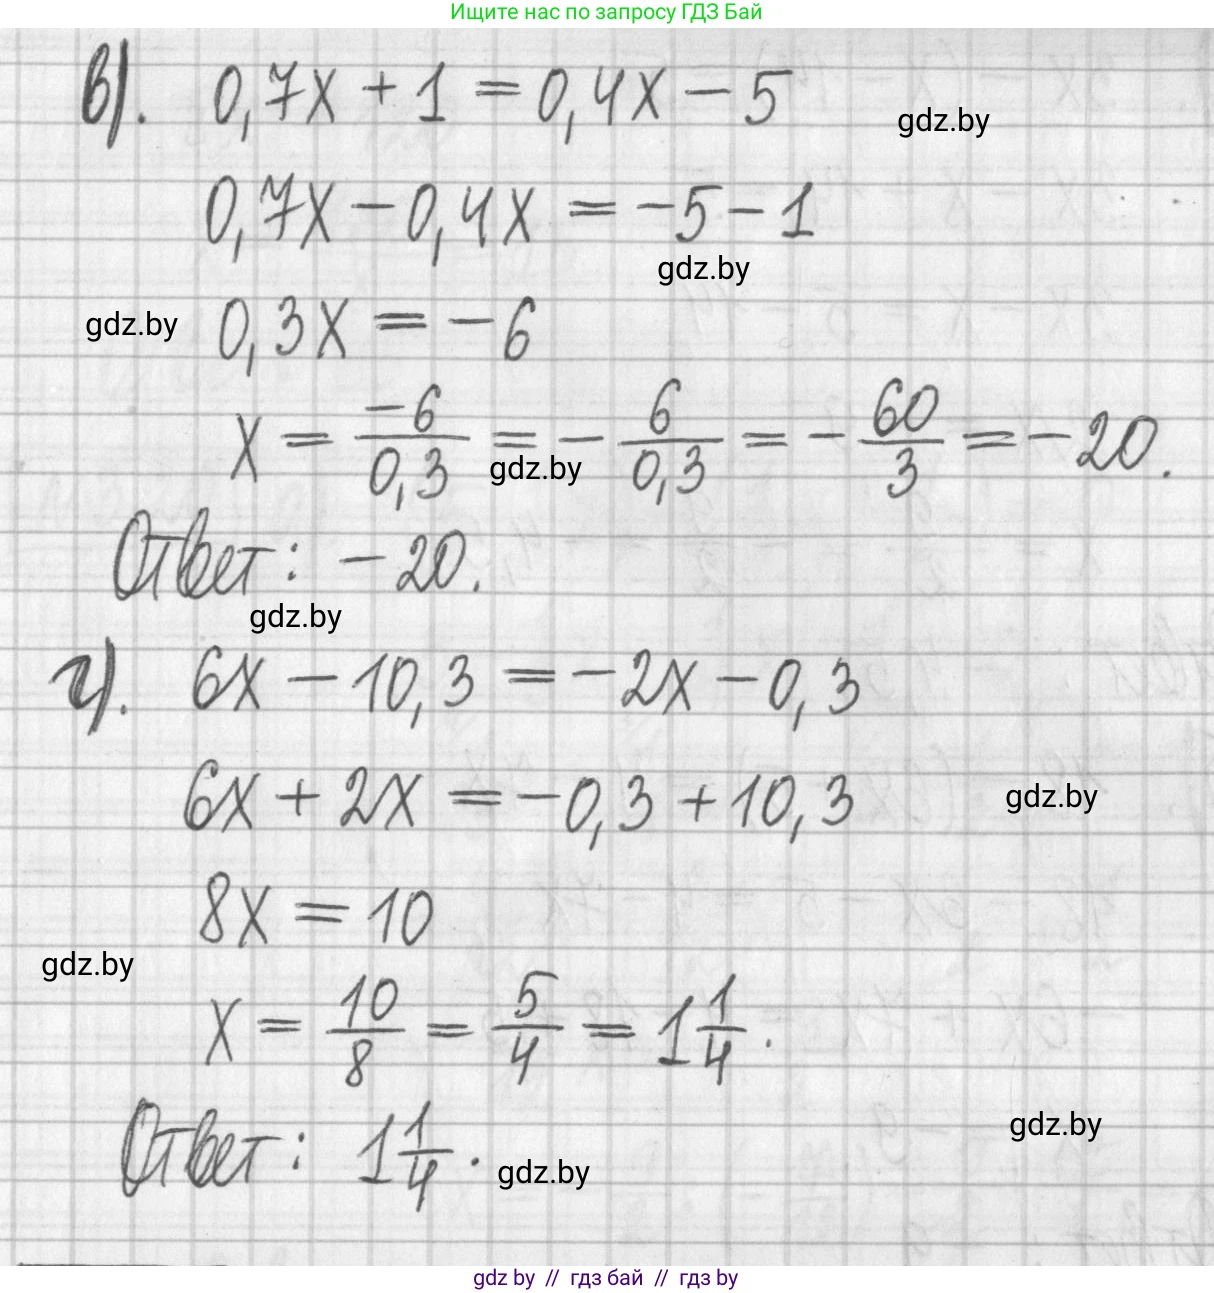 Ищите нас по запросу ГДЗ Бай
в). 0,7x + 1 = 0,4x - 5
gdz.by
0,7x - 0,4x = -5 - 1
gdz.by
gdz.by 0,3x = -6
x = -6/0,3 = -6/0,3 = -60/3 = -20.
gdz.by
Ответ: -20.
gdz.by
г). 6x - 10,3 = -2x - 0,3
6x + 2x = -0,3 + 10,3
gdz.by
8x = 10
gdz.by
x = 10/8 = 5/4 = 1 1/4.
Ответ: 1 1/4.
gdz.by
gdz.by
gdz by // гдз бай // гдз by